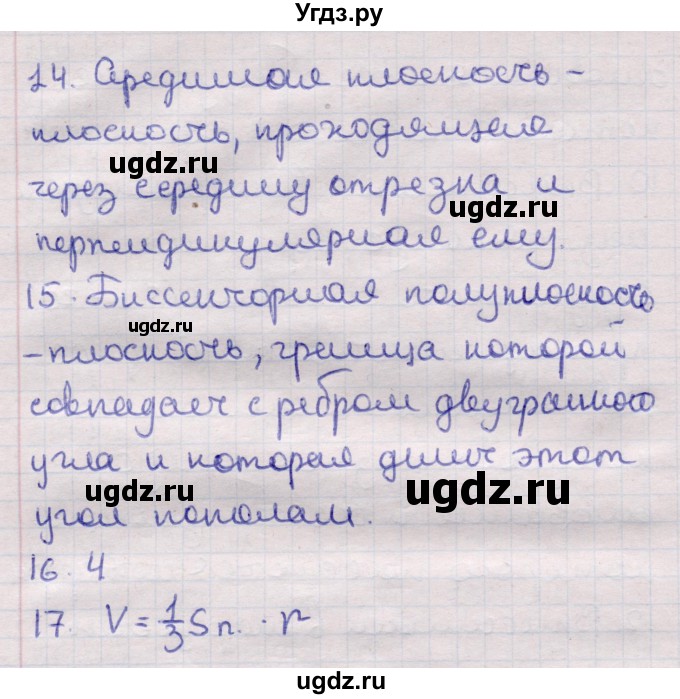 Угдз.ру
14. Срединная плоскость -
плоскость, проходящая
ugdz.ru
через середину отрезка и
ugdz.ru
перпендикулярная ему.
15. Биссекторная полуплоскость
ugdz.ru
- плоскость, граница которой
совпадает с ребром двугранного
угла и которая делит этот
ugdz.ru ugdz.ru
угол пополам.
16. 4
17. V = 1/3 Sп. · r
ugdz.ru